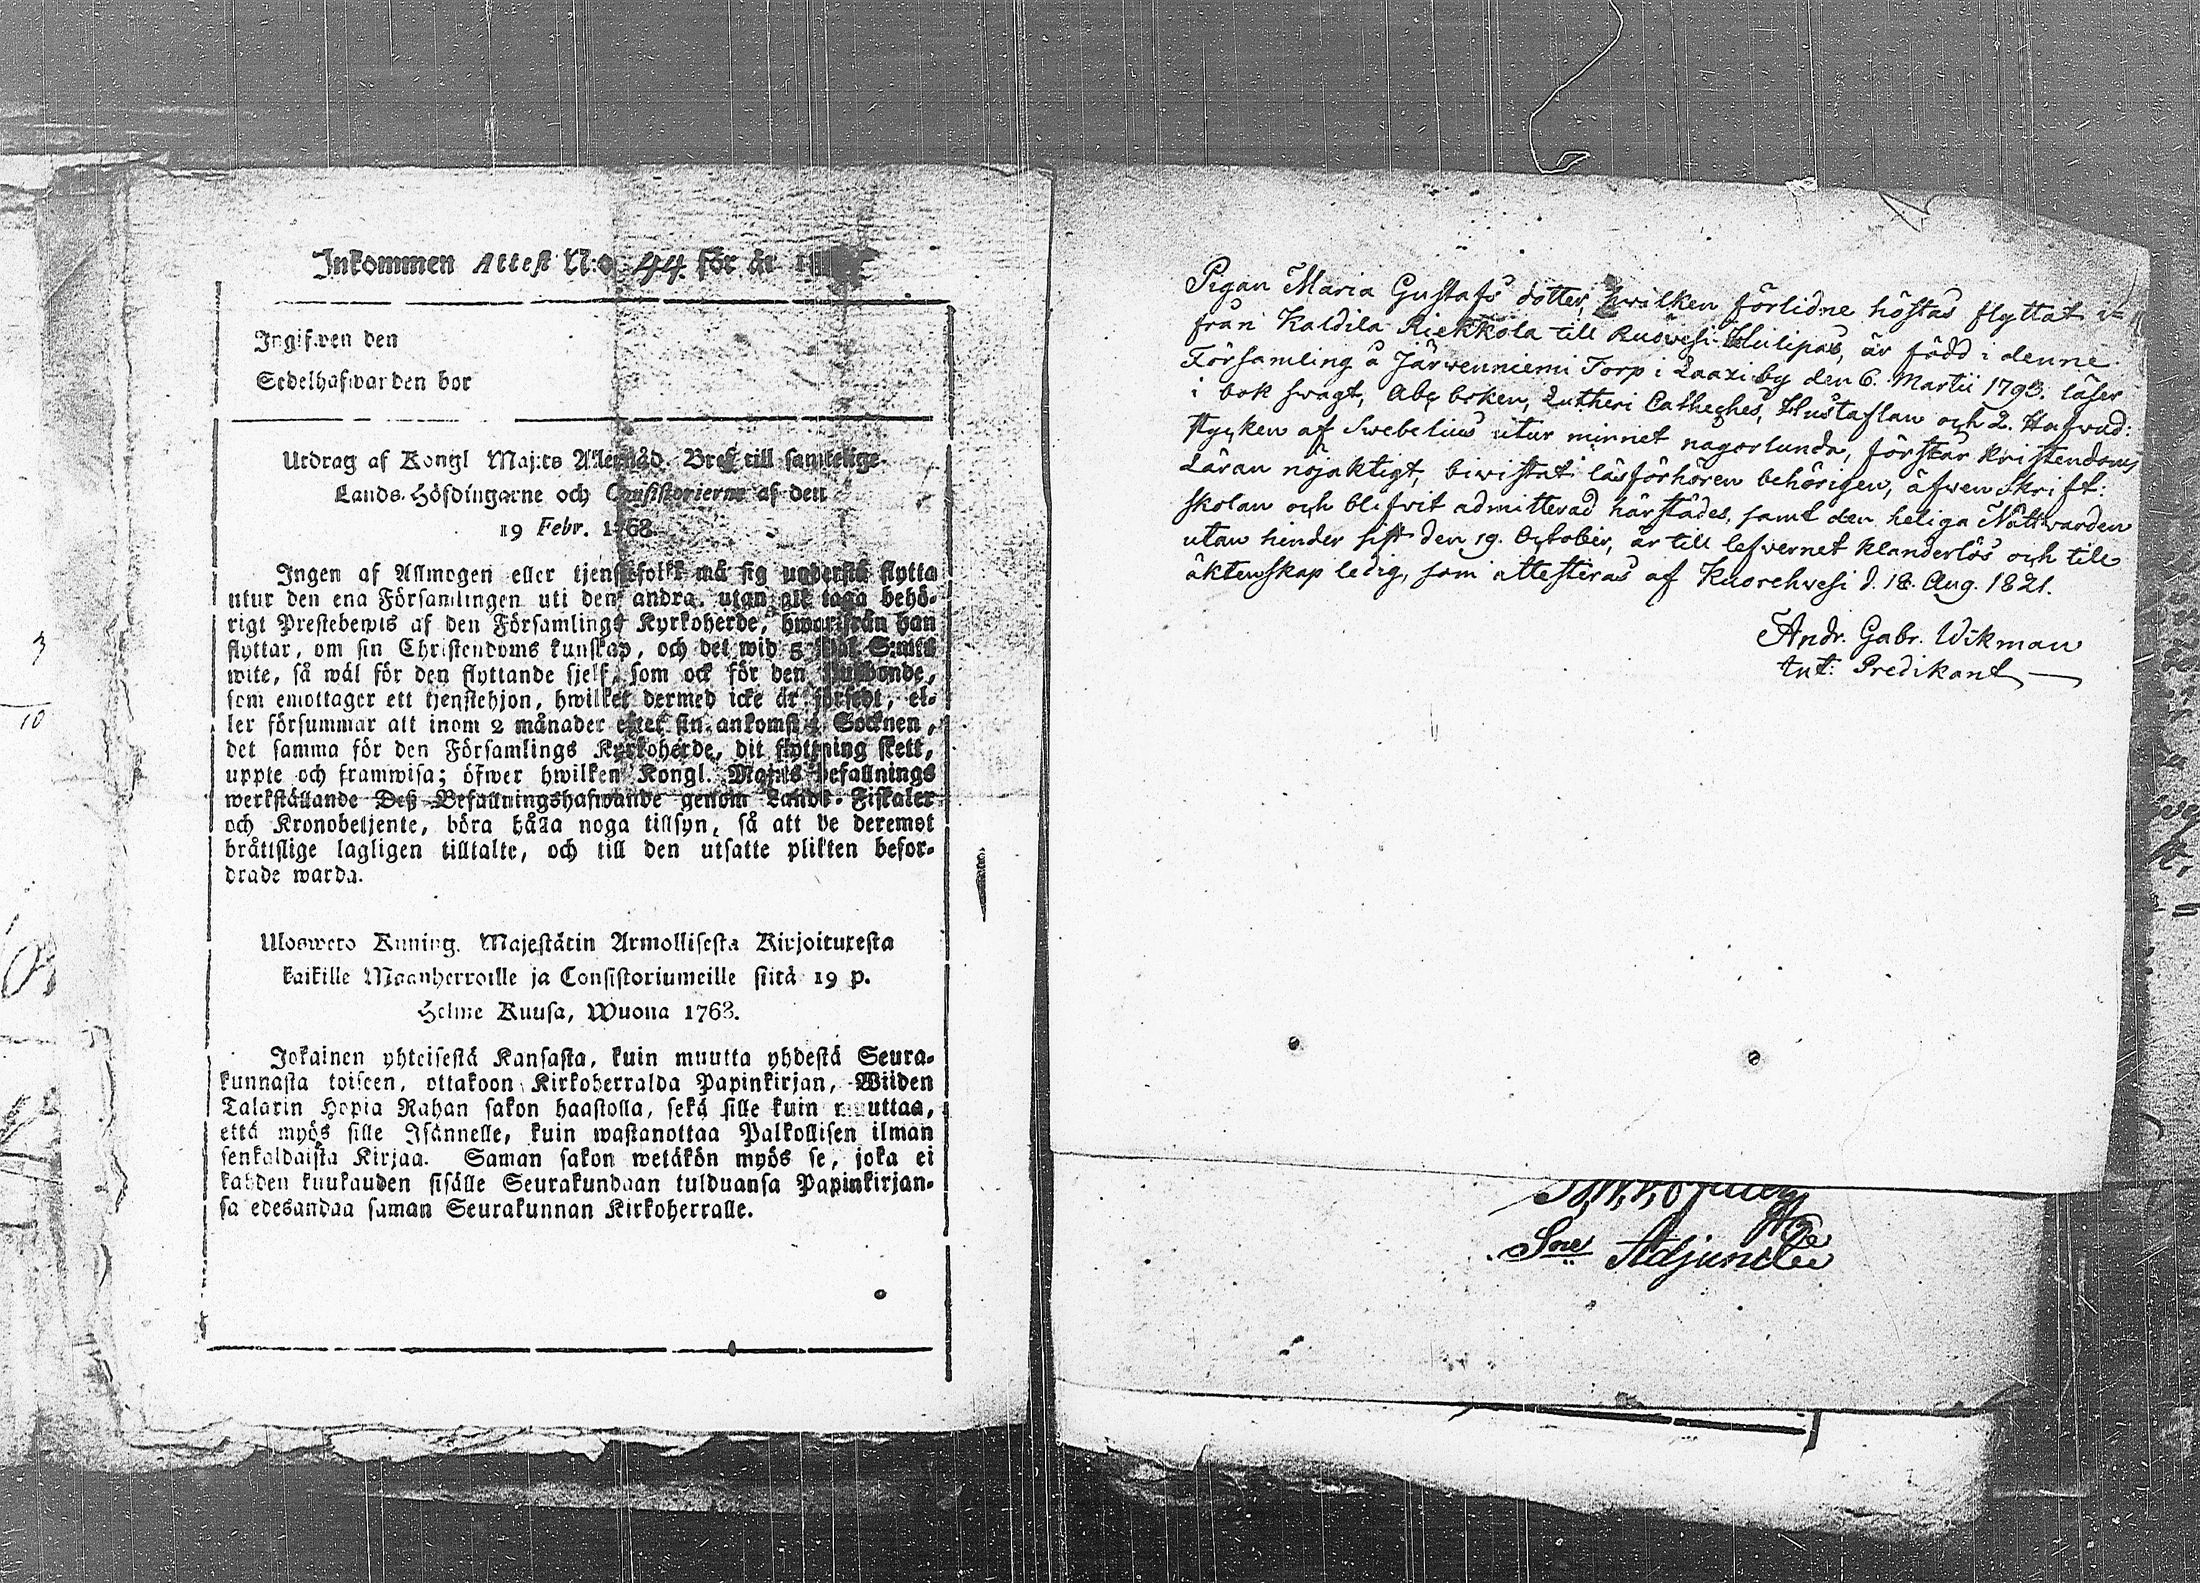 Inkommen Attest N:o 44 för år 1
Ingifwen den
Sedelhafwarden bor
Utdrag af Kongl Maj:ts Allernåd. Bref till samtelige
Lands-Höfdingarne och Consistorierne af den
19 Febr. 1763.
Ingen af Allmogen eller tjenstefolkt må sig understå flytta
utur den ena Församlingen uti den andra, utan att taga behö-
rigt Prestebewis af den Församlings Kyrkoherde, hwarifrån han
flyttar, om sin Christendoms kunskap, och det wid 5 S:mts
wite, så wäl för den flyttande sjelf, som ock för den
som emottager ett tjenstehjon, hwilket dermed icke är försedt, el-
ler försummar att inom 2 månader efter sin ankomst i Socknen,
det samma för den Församlings Kyrkoherde, dit flyttning skett,
uppte och framwisa; öfwer hwilken Kongl. Maj:ts befallnings
werkställande Deß Befallningshafwande genom Lands-Fiskaler
och Kronobetjente, böra hålla noga tillsyn, så att de deremot
bråttslige lagligen tilltalte, och till den utsatte plikten befor-
drade warda.
Uloswero Kuning. Majestätin Armollisesta Kirjoituxesta
kaikille Maanherroille ja Consistoriumeille siitä 19 p.
Helme Kuusa, Wuona 1763.
Jokainen yhteisestä Kansasta, kuin muutta yhdestä Seura-
kunnasta toiseen, ottakoon Kirkoherralda Papinkirjan, Wiiden
Talarin Hopia Rahan sakon haastolla, sekä sille kuin muuttaa,
että myös sille Isännelle, kuin wastanottaa Palkollisen ilman
senkaldaista Kirjaa. Saman sakon wetäkön myös se, joka ei
kahden kuukauden sisälle Seurakundaan tulduansa Papinkirjan-
sa edesandaa saman Seurakunnan Kirkoherralle.
Pigan Maria Gustafs dotter, hwilken förlidne höstas flyttat
från Kaldila Riekkola till Ruowesi Hulipas, är född i denne
Församling å Järwenniemi Torp i Laaxi by den 6. Martii 1793. läser
i bok swagt, Abc boken, Lutheri Catheches, Hustaflan och 2. Hufwud:
stycken af Swebelius utur minnet nagorlunda, förstår kristendoms
Läran nöjaktigt, biwistat läsförhören behörigen, äfwen skrift:
skolan och blifvit admitterad härstädes, samt den heliga Nattwarden
utan hinder sist den 19. October, är till lefvernet klanderlös och till
äktenskap ledig, som attesteras af Kuorehwesi d. 18. Aug. 1821.
Andr. Gabr. Wikman
Predikant
Adjuncten
3
10